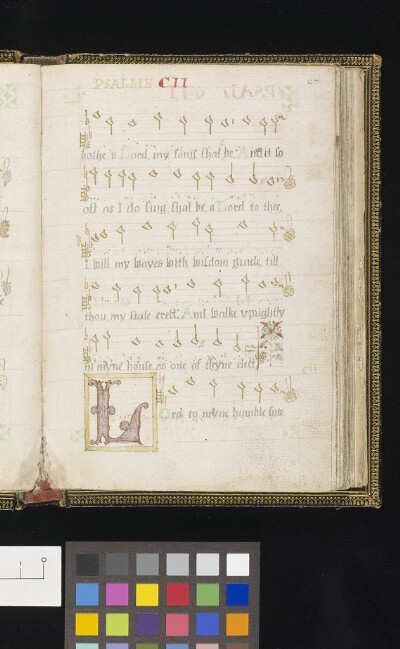 PSALME CII
bothe o Lord, my song shal be, And it so
oft as I do sing, shal be o Lord to thee.
I will my wayes with wisdom guide, till
thou my state erect, And walke uprightly
in myne house, as one of thyne elect.
CII
LOrd, to myne humble sute